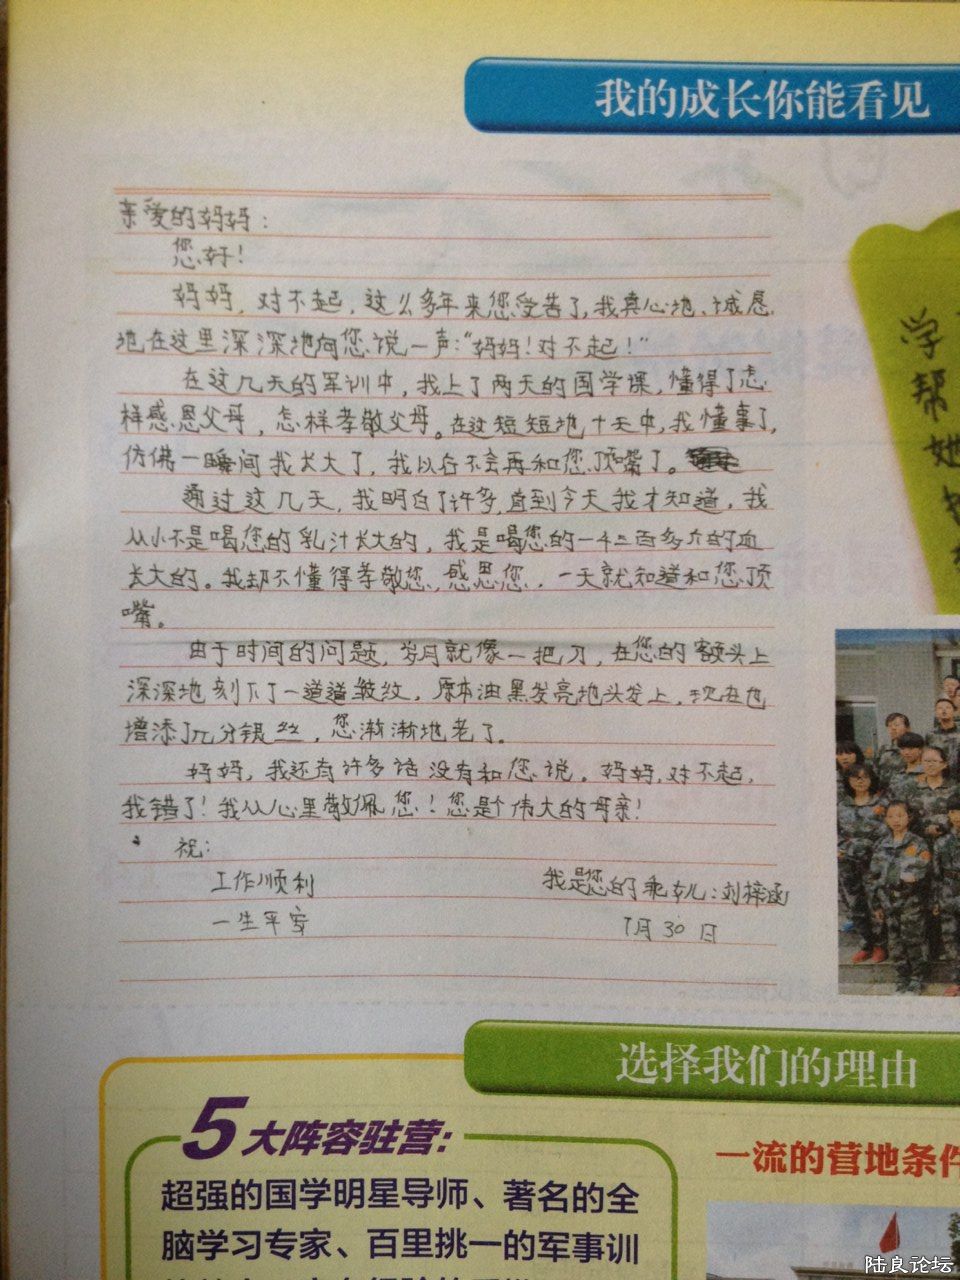 我的成长你能看见
亲爱的妈妈：
您好！
妈妈，对不起，这么多年来您受苦了，我真心地、诚恳
地在这里深深地向您说一声："妈妈！对不起！"
在这几天的军训中，我上了两天的国学课，懂得了怎
样感恩父母，怎样孝敬父母。在这短短地十天中，我懂事了，
仿佛一瞬间我长大了，我以后不会再和您顶嘴了。
通过这几天，我明白了许多，直到今天我才知道，我
从小不是喝您的乳汁长大的，我是喝您的一千二百多斤的血
长大的。我却不懂得孝敬您、感恩您，一天就知道和您顶
嘴。
由于时间的问题，岁月就像一把刀，在您的额头上
深深地刻下了一道道皱纹，原本油黑发亮地头发上，现在也
增添了几分银丝，您渐渐地老了。
妈妈，我还有许多话没有和您说。妈妈，对不起，
我错了！我从心里敬佩您！您是个伟大的母亲！
祝：
工作顺利
我是您的乖女儿：刘梓函
一生平安
7月30日
学
帮
她
选择我们的理由
5大阵容驻营：
一流的营地条件
超强的国学明星导师、著名的全
脑学习专家、百里挑一的军事训
陆良论坛